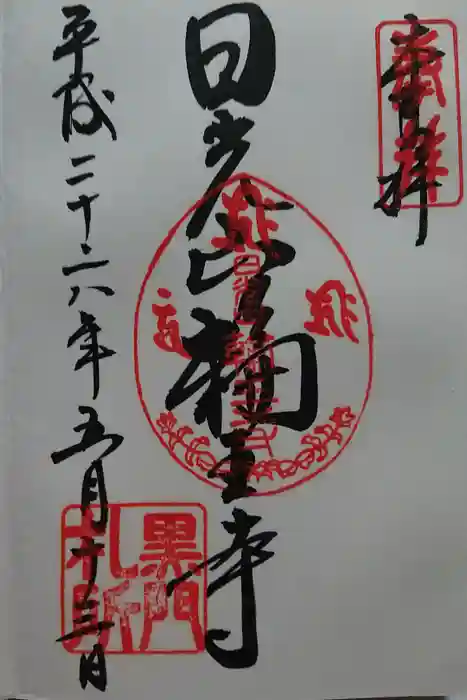 奉拝
奉拝
日光山輪王寺
平成二十六年五月十三日
黒門
札所